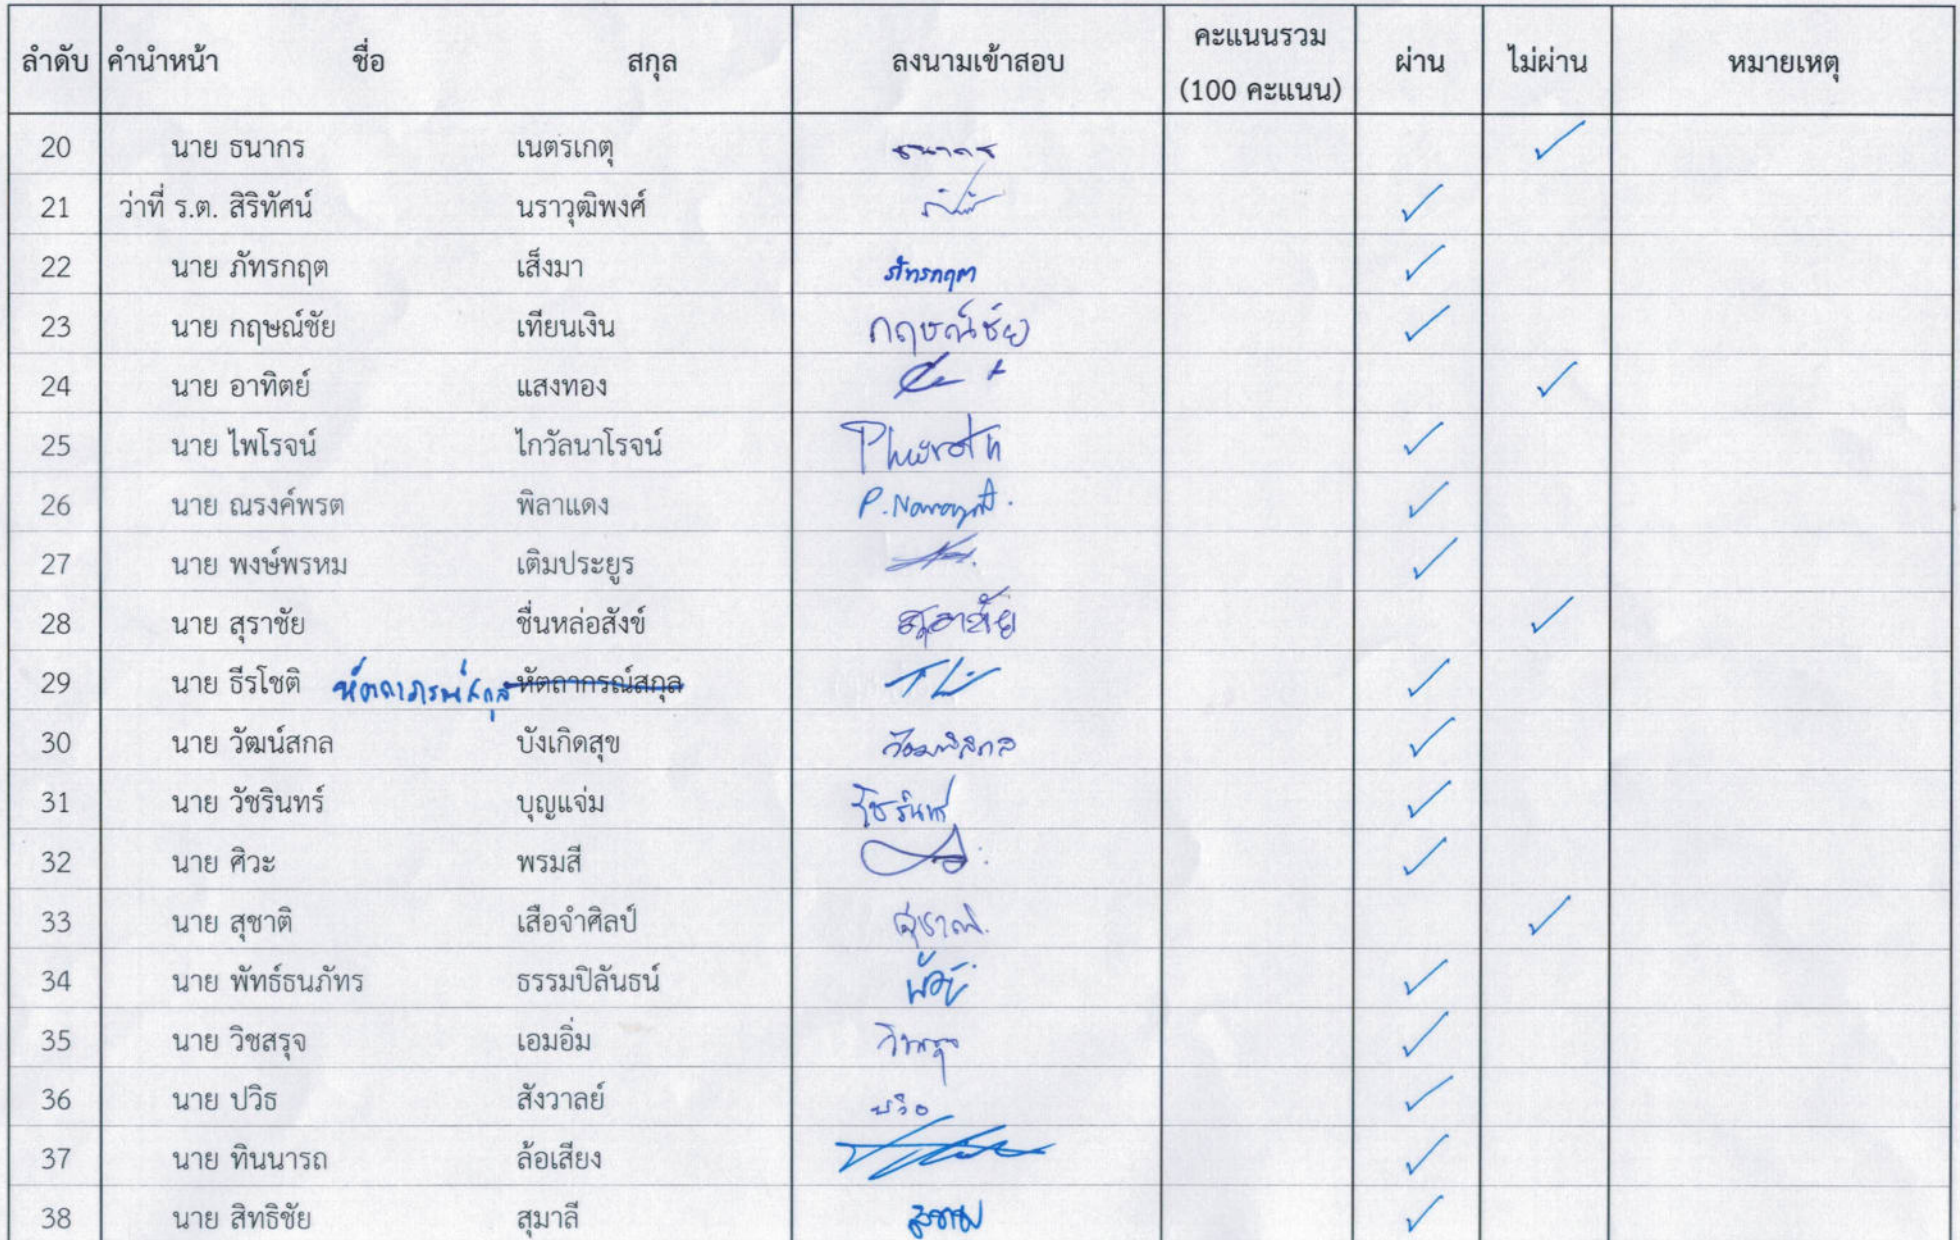 ลำดับ คำนำหน้า ชื่อ สกุล ลงนามเข้าสอบ คะแนนรวม (100 คะแนน) ผ่าน ไม่ผ่าน หมายเหตุ
20 นาย ธนากร เนตรเกตุ ธนากร ✓
21 ว่าที่ ร.ต. สิริทัศน์ นราวุฒิพงศ์ ✓
22 นาย ภัทรกฤต เส็งมา ภัทรกฤต ✓
23 นาย กฤษณ์ชัย เทียนเงิน กฤษณ์ชัย ✓
24 นาย อาทิตย์ แสงทอง ✓
25 นาย ไพโรจน์ ไกวัลนาโรจน์ ✓
26 นาย ณรงค์พรต พิลาแดง ✓
27 นาย พงษ์พรหม เติมประยูร ✓
28 นาย สุราชัย ชื่นหล่อสังข์ สุราชัย ✓
29 นาย ธีรโชติ หัตถาภรณ์สกุล หัตถากรณ์สกุล ✓
30 นาย วัฒน์สกล บังเกิดสุข วัฒน์สกล ✓
31 นาย วัชรินทร์ บุญแจ่ม วัชรินทร์ ✓
32 นาย ศิวะ พรมสี ✓
33 นาย สุชาติ เสือจำศิลป์ สุชาติ ✓
34 นาย พัทธ์ธนภัทร ธรรมปิลันธน์ ✓
35 นาย วิชสรุจ เอมอิ่ม ✓
36 นาย ปวิธ สังวาลย์ ปวิธ ✓
37 นาย ทินนารถ ล้อเสียง ✓
38 นาย สิทธิชัย สุมาลี ✓